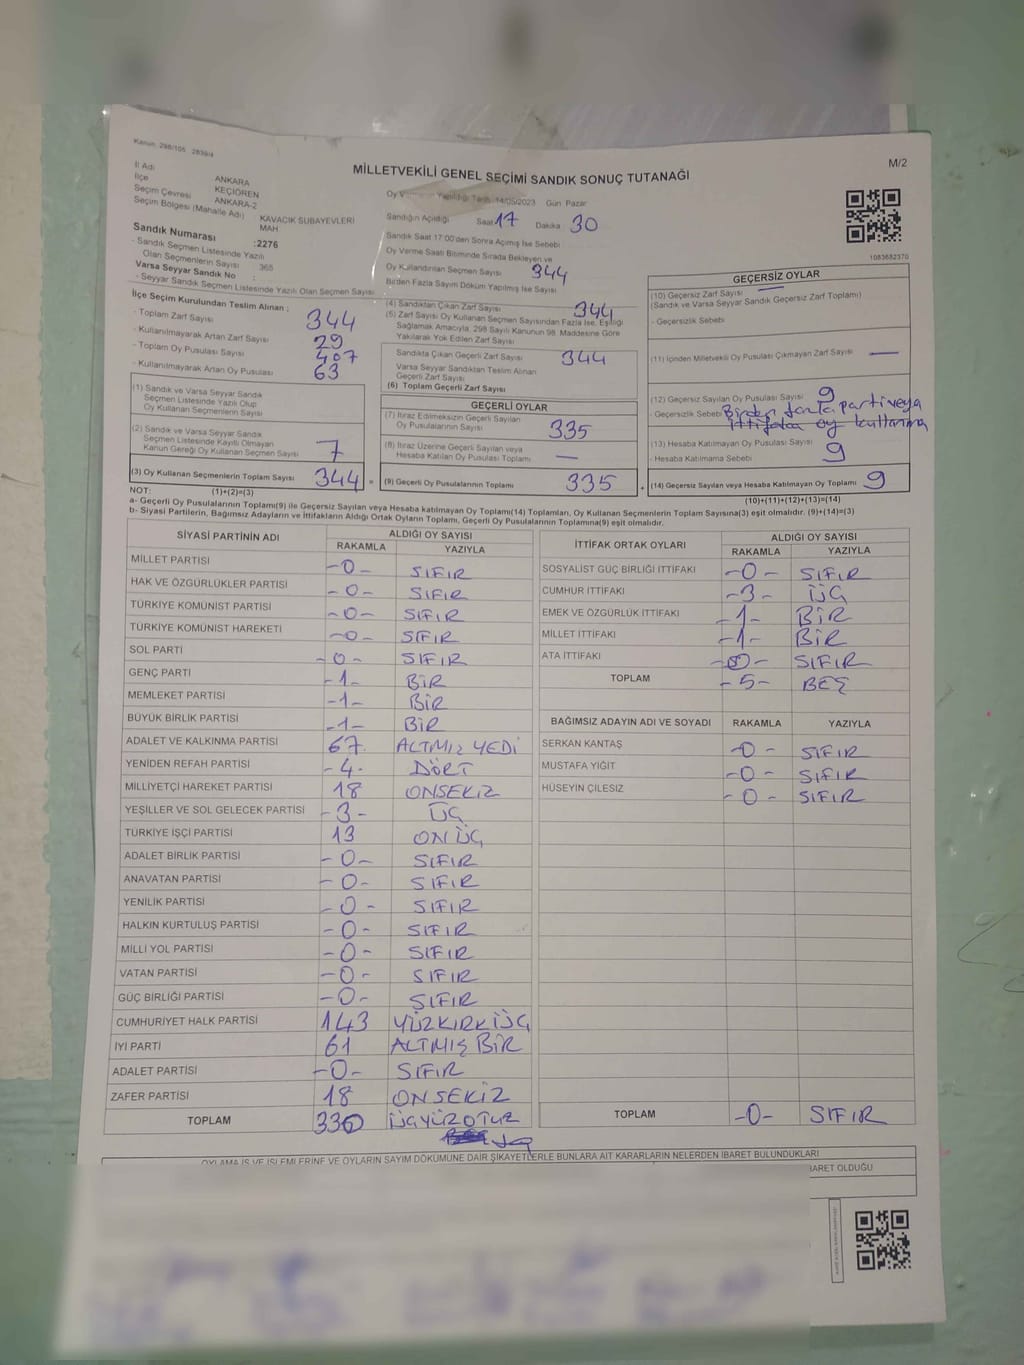 Kanun: 298/105 2839/4
M/2
MİLLETVEKİLİ GENEL SEÇİMİ SANDIK SONUÇ TUTANAĞI
İl Adı ANKARA
İlçe KEÇİÖREN
Seçim Çevresi ANKARA-2
Seçim Bölgesi (Mahalle Adı) KAVACIK SUBAYEVLERİ MAH
Sandık Numarası :2276
- Sandık Seçmen Listesinde Yazılı Olan Seçmenlerin Sayısı 365
Varsa Seyyar Sandık No :
- Seyyar Sandık Seçmen Listesinde Yazılı Olan Seçmen Sayısı
İlçe Seçim Kurulundan Teslim Alınan :
- Toplam Zarf Sayısı 344
- Kullanılmayarak Artan Zarf Sayısı 29
- Toplam Oy Pusulası Sayısı 407
- Kullanılmayarak Artan Oy Pusulası 63
(1) Sandık ve Varsa Seyyar Sandık
Seçmen Listesinde Yazılı Olup
Oy Kullanan Seçmenlerin Sayısı
(2) Sandık ve Varsa Seyyar Sandık
Seçmen Listesinde Kayıtlı Olmayan
Kanun Gereği Oy Kullanan Seçmen Sayısı 7
(3) Oy Kullanan Seçmenlerin Toplam Sayısı 344 =
(1)+(2)=(3)
Oy Yapıldığı Tarih 14/05/2023 Gün Pazar
Sandığın Açıldığı Saat 17 Dakika 30
Sandık Saat 17:00'den Sonra Açılmış İse Sebebi
Oy Verme Saati Bitiminde Sırada Bekleyen ve
Oy Kullandırılan Seçmen Sayısı 344
Birden Fazla Sayım Döküm Yapılmış İse Sayısı
(4) Sandıktan Çıkan Zarf Sayısı 344
(5) Zarf Sayısı Oy Kullanan Seçmen Sayısından Fazla İse, Eşitliği
Sağlamak Amacıyla, 298 Sayılı Kanunun 98. Maddesine Göre
Yakılarak Yok Edilen Zarf Sayısı
Sandıkta Çıkan Geçerli Zarf Sayısı 344
Varsa Seyyar Sandıktan Teslim Alınan
Geçerli Zarf Sayısı
(6) Toplam Geçerli Zarf Sayısı
GEÇERLİ OYLAR
(7) İtiraz Edilmeksizin Geçerli Sayılan
Oy Pusulalarının Sayısı 335
(8) İtiraz Üzerine Geçerli Sayılan veya
Hesaba Katılan Oy Pusulası Toplamı —
(9) Geçerli Oy Pusulalarının Toplamı 335 +
1083682370
GEÇERSİZ OYLAR
(10) Geçersiz Zarf Sayısı —
(Sandık ve Varsa Seyyar Sandık Geçersiz Zarf Toplamı)
- Geçersizlik Sebebi
(11) İçinden Milletvekili Oy Pusulası Çıkmayan Zarf Sayısı —
(12) Geçersiz Sayılan Oy Pusulası Sayısı 9
- Geçersizlik Sebebi Birden fazla parti veya
ittifaka oy kullanma
(13) Hesaba Katılmayan Oy Pusulası Sayısı 9
- Hesaba Katılmama Sebebi
(14) Geçersiz Sayılan veya Hesaba Katılmayan Oy Toplamı 9
(10)+(11)+(12)+(13)=(14)
NOT:
a- Geçerli Oy Pusulalarının Toplamı(9) ile Geçersiz Sayılan veya Hesaba katılmayan Oy Toplamı(14) Toplamları, Oy Kullanan Seçmenlerin Toplam Sayısına(3) eşit olmalıdır. (9)+(14)=(3)
b- Siyasi Partilerin, Bağımsız Adayların ve İttifakların Aldığı Ortak Oyların Toplamı, Geçerli Oy Pusulalarının Toplamına(9) eşit olmalıdır.
SİYASİ PARTİNİN ADI ALDIĞI OY SAYISI
RAKAMLA YAZIYLA
MİLLET PARTİSİ -0- SIFIR
HAK VE ÖZGÜRLÜKLER PARTİSİ -0- SIFIR
TÜRKİYE KOMÜNİST PARTİSİ -0- SIFIR
TÜRKİYE KOMÜNİST HAREKETİ -0- SIFIR
SOL PARTİ -0- SIFIR
GENÇ PARTİ -1- BİR
MEMLEKET PARTİSİ -1- BİR
BÜYÜK BİRLİK PARTİSİ -1- BİR
ADALET VE KALKINMA PARTİSİ 67. ALTMIŞ YEDİ
YENİDEN REFAH PARTİSİ -4- DÖRT
MİLLİYETÇİ HAREKET PARTİSİ 18 ONSEKİZ
YEŞİLLER VE SOL GELECEK PARTİSİ -3- ÜÇ
TÜRKİYE İŞÇİ PARTİSİ 13 ON ÜÇ
ADALET BİRLİK PARTİSİ -0- SIFIR
ANAVATAN PARTİSİ -0- SIFIR
YENİLİK PARTİSİ -0- SIFIR
HALKIN KURTULUŞ PARTİSİ -0- SIFIR
MİLLİ YOL PARTİSİ -0- SIFIR
VATAN PARTİSİ -0- SIFIR
GÜÇ BİRLİĞİ PARTİSİ -0- SIFIR
CUMHURİYET HALK PARTİSİ 143 YÜZKIRKÜÇ
İYİ PARTİ 61 ALTMIŞ BİR
ADALET PARTİSİ -0- SIFIR
ZAFER PARTİSİ 18 ONSEKİZ
TOPLAM 330 ÜÇYÜZOTUZ
İTTİFAK ORTAK OYLARI ALDIĞI OY SAYISI
RAKAMLA YAZIYLA
SOSYALİST GÜÇ BİRLİĞİ İTTİFAKI -0- SIFIR
CUMHUR İTTİFAKI -3- ÜÇ
EMEK VE ÖZGÜRLÜK İTTİFAKI -1- BİR
MİLLET İTTİFAKI -1- BİR
ATA İTTİFAKI -0- SIFIR
TOPLAM -5- BEŞ
BAĞIMSIZ ADAYIN ADI VE SOYADI RAKAMLA YAZIYLA
SERKAN KANTAŞ -0- SIFIR
MUSTAFA YİĞİT -0- SIFIR
HÜSEYİN ÇİLESİZ -0- SIFIR
TOPLAM -0- SIFIR
OYLAMA İŞ VE İŞLEMLERİNE VE OYLARIN SAYIM DÖKÜMÜNE DAİR ŞİKAYETLERLE BUNLARA AİT KARARLARIN NELERDEN İBARET BULUNDUKLARI
İBARET OLDUĞU